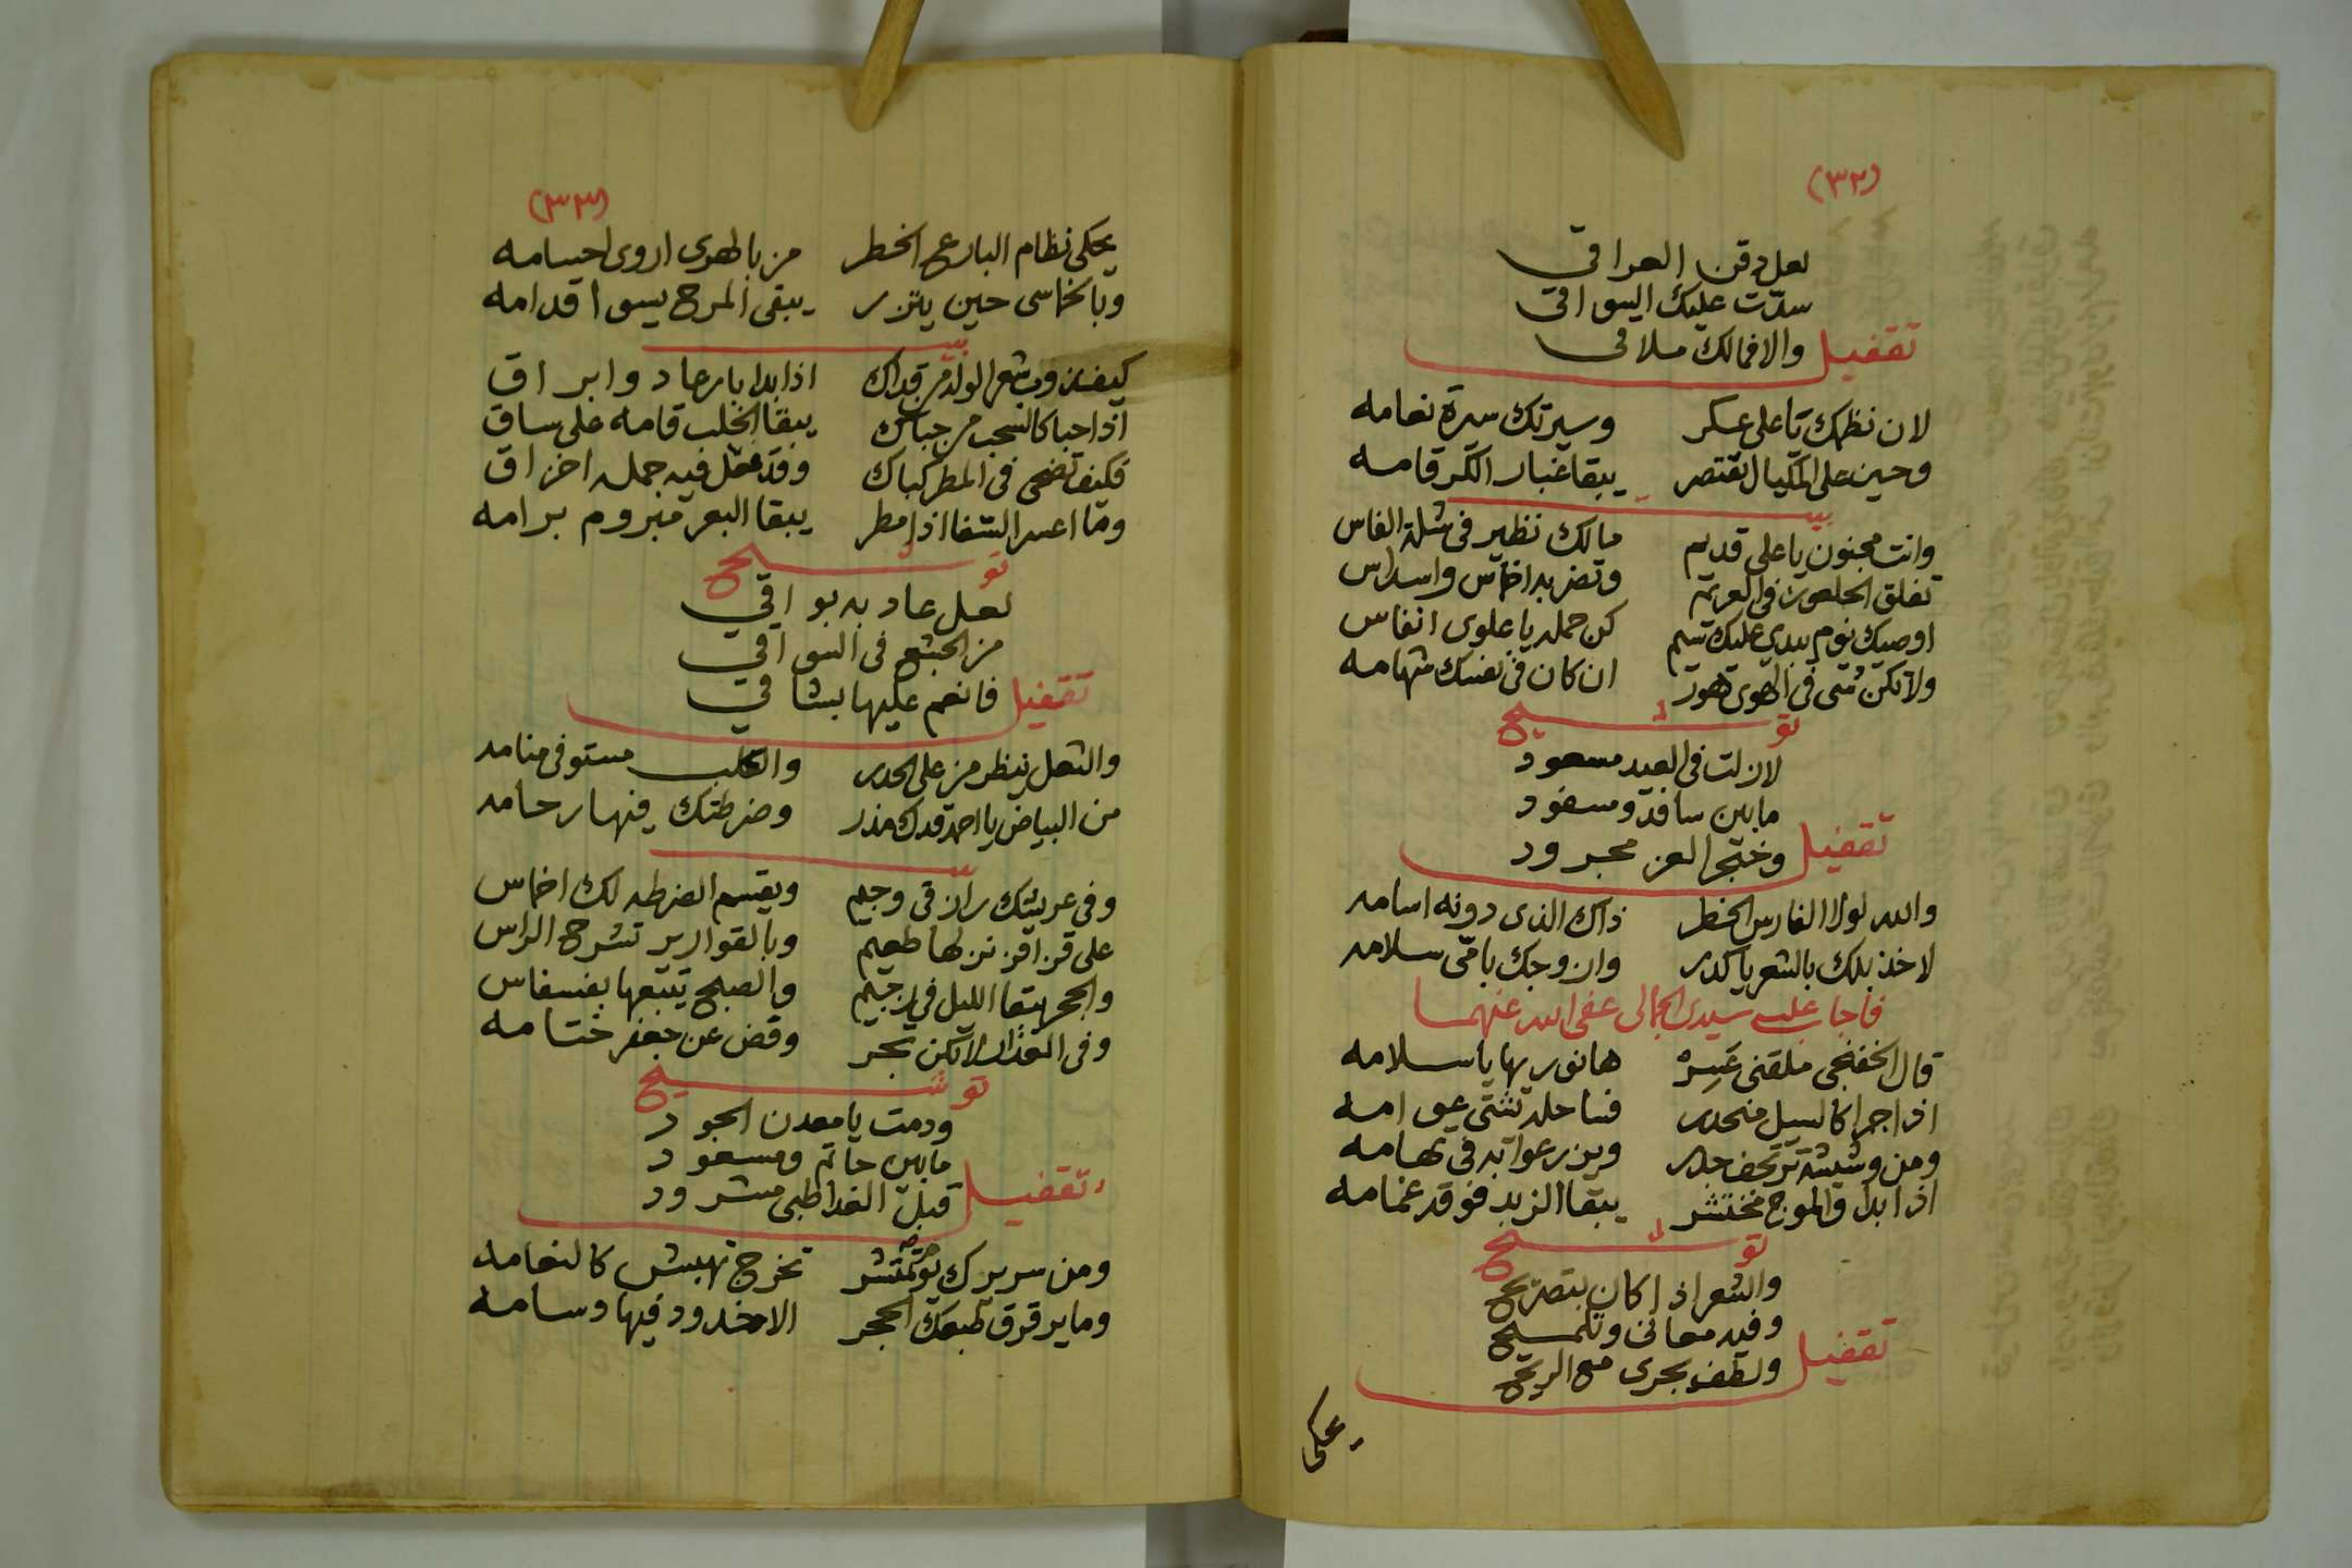 (٣٢)
لعل دقن العراقي
سدّت عليك السواقي
تقفيل والا فمالك ملاقي
لان نظمك يا علي عسكر وسيرتك سيرة نعامه
وحين على المكيال تقتصر يبقا غبار الكر قامه
بيت
وانت مجنون يا علي قديم مالك نظير في شلة الفاس
تفلق في العريم وتضربه اخماس واسداس
اوصيك يوم يبدي عليك كن حمله يا علوى انفاس
ولا تكن في الهوى تهور ان كان في نفسك شهامه
توشيح
لا زلت في العيد مسعود
مابين سافة ومسفود
تقفيل وخنجر العز مجرود
والله لولا الفارس الخطر ذاك الذى دونه اسامه
لاخذ بلك بالشعر يا كدر وازوجك يا سلامه
فاجاب عليه سيدي الجمالى عفى الله عنهما
قال الخفنجي ملقني عَسِرْ هانوريها يا سلامه
اذا جرا كالسيل منحدر فسا حله تنثني عوامه
ومن وشيشة ترتجف جدر ويزرعوا به في تهامه
اذا بدا والموج مختشر يبقا الزبد فوقه غمامه
توشيح
والشعر اذا كان بتصريح
وفيه معاني وتلميح
تقفيل ولطف يجرى مع الريح
يحكى
(٣٣)
يحكى نظام البارع الخطر من بالهوى اروى احسامه
وبالخماسى حين يتزر يبقى المرح يسوا اقدامه
بيت
كيف وشعر الولد من قداك اذا بدا بارعاد وابراق
اذا حبا كالسحب من حباك يبقا الخلب قامه على ساق
فكيف تضحى في المطر كباك وقد عقل فيه جمله اخراق
وما اعسر الشفا اذا مطر يبقا البعر مبروم برامه
توشيح
لعل عاد به بواقي
من الجشع في السواقي
تقفيل فانعم عليها بشاقي
والثعل ينظر من على الحدر والكلب مستوفى منامه
من البياض يا احمد قدك مذر وضرطتك فيها رحامه
بيت
وفي عريشك رازقي وجيم ويقسم الضرطه لك اخماس
على قرن نزلها طعيم وبالقوارير تشرح الراس
والحجر يبقا الليل في رجيم والصبح يتبعها بفسفاس
وفي الغدا لا تكن تجر وقض عن جعفر ختامه
توشيح
ودمت يا معدن الجود
مابين حاتم ومسعود
تقفيل قبل الغدا ظبى مشرود
ومن سريرك ثو تمتشر تخرج تهبش كالنعامه
وما يرقرق طبعك الحجر الاخدود فيها وسامه